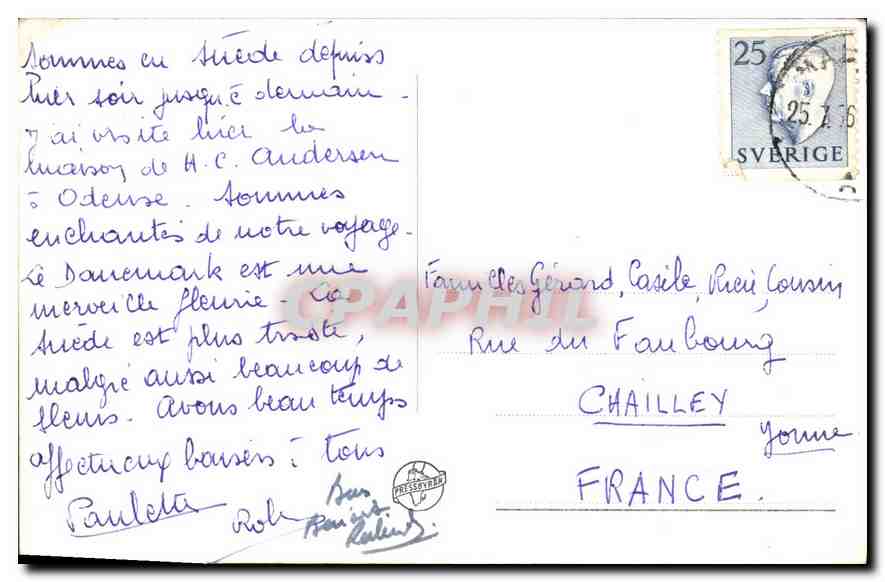 Sommes en Suède depuis
hier soir jusqu'à demain -
J'ai visité hier la
maison de H.C. Andersen
à Odense. Sommes
enchantés de notre voyage -
Le Danemark est une
merveille fleurie - La
Suède est plus triste,
malgré aussi beaucoup de
fleurs. Avons beau temps
affectueux baisers à tous
Paulette
Bons
Baisers
25
SVERIGE
25.7.
PRESSBYRÅN
Familles Gérard, Casile, Cousin
Rue du Faubourg
CHAILLEY
Yonne
FRANCE.
CPAPHIL